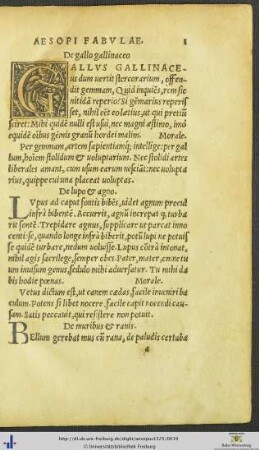 AESOPI FABVLAE. 8
De gallo gallinaceo
GALLVS GALLINACE-
us dum vertit stercorarium, offen
dit gemmam, Quid inquiēs, rem sic
nitidā reperio? Si gēmarius reperis
set, nihil eēt eo lætius, ut qui pretiū
sciret: Mihi quidē nulli est usui, nec magni æstimo, imò
equidē oībus gēmis granū hordei malim. Morale.
Per gemmam, artem sapientiamq; intellige: per gal
lum, hoīem stolidum & voluptarium. Nec stolidi artes
liberales amant, cum usum earum nesciāt: nec volupta
rius, quippe cui una placeat voluptas.
De lupo & agno.
LVpus ad caput fontis bibēs, videt agnum procul
infrà bibentē. Accurrit, agnū increpat q, turba
rit fontē. Trepidare agnus, supplicare ut parcat inno
centi: se, quando longe infrà biberit, potū lupi ne potuis
se quidē turbare, nedum voluisse. Lupus cōtrà intonat,
nihil agis sacrilege, semper obes: Pater, mater, omne tu
um inuisum genus, sedulo mihi aduersatur. Tu mihi da
bis hodie pœnas. Morale.
Vetus dictum est, ut canem cædas, facile inueniri ba
culum. Potens si libet nocere, facile capit nocendi cau-
sam. Satis peccauit, qui resistere non potuit.
De muribus & ranis.
BEllum gerebat mus cū rana, de paludis certaba
a
http://dl.ub.uni-freiburg.de/diglit/aesopus1521/0019
© Universitätsbibliothek Freiburg
Baden-Württemberg